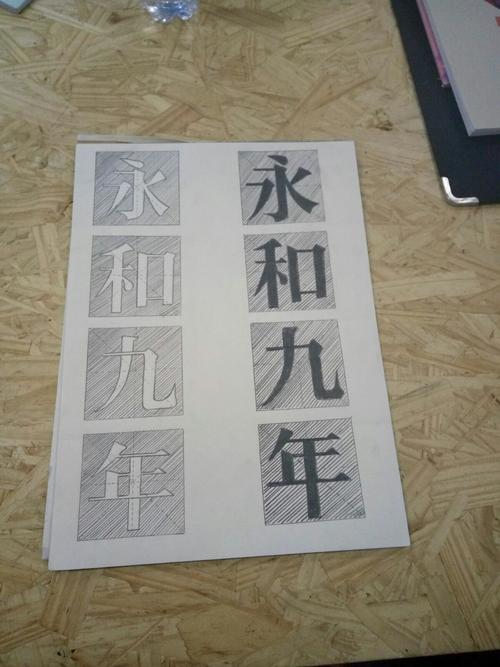 永和九年
永和九年